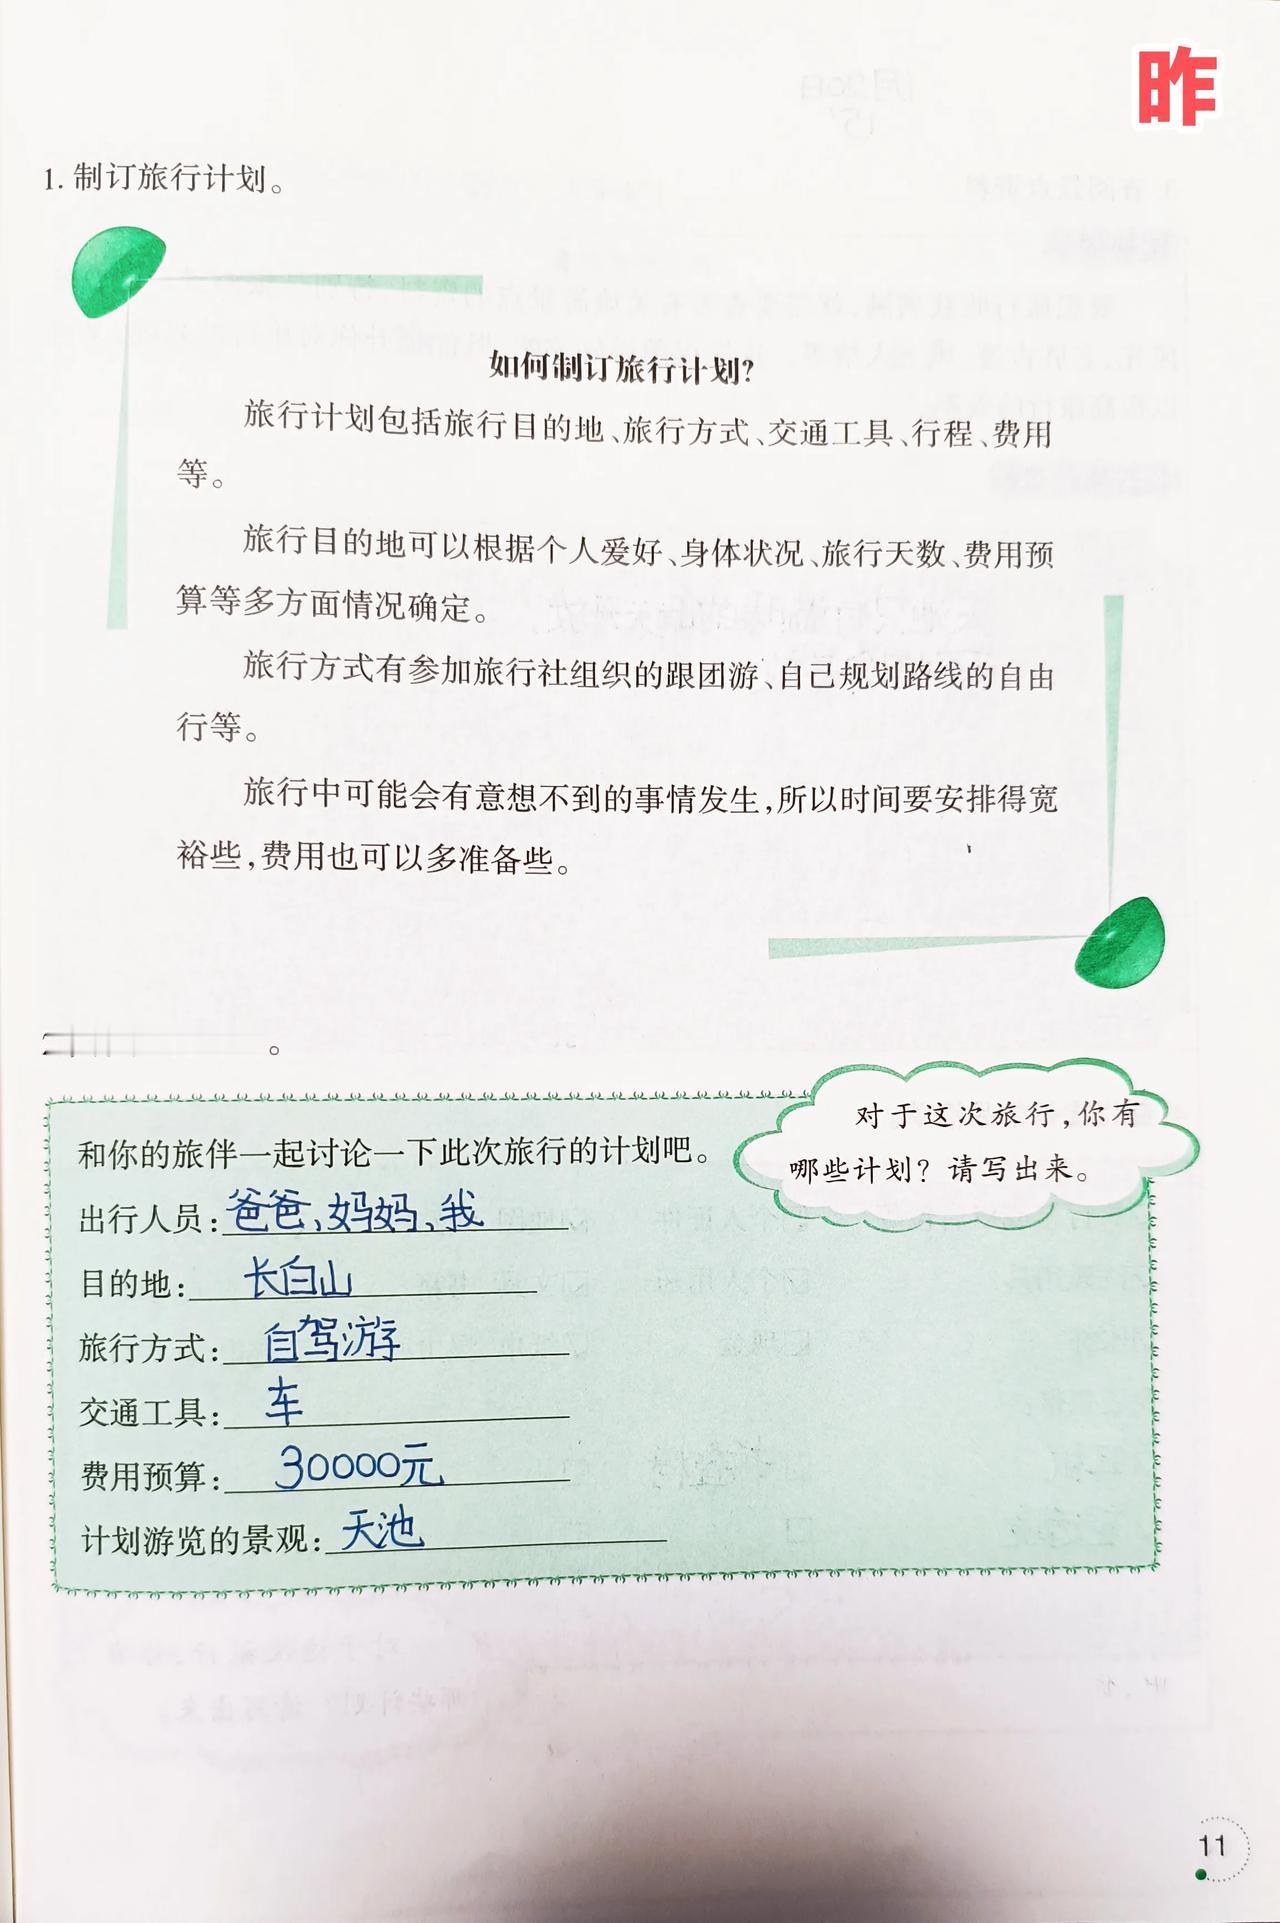 昨
1. 制订旅行计划。
如何制订旅行计划?
旅行计划包括旅行目的地、旅行方式、交通工具、行程、费用
等。
旅行目的地可以根据个人爱好、身体状况、旅行天数、费用预
算等多方面情况确定。
旅行方式有参加旅行社组织的跟团游、自己规划路线的自由
行等。
旅行中可能会有意想不到的事情发生,所以时间要安排得宽
裕些,费用也可以多准备些。
对于这次旅行,你有
哪些计划? 请写出来。
和你的旅伴一起讨论一下此次旅行的计划吧。
出行人员:爸爸、妈妈、我
目的地:长白山
旅行方式:自驾游
交通工具:车
费用预算:30000元
计划游览的景观:天池
11